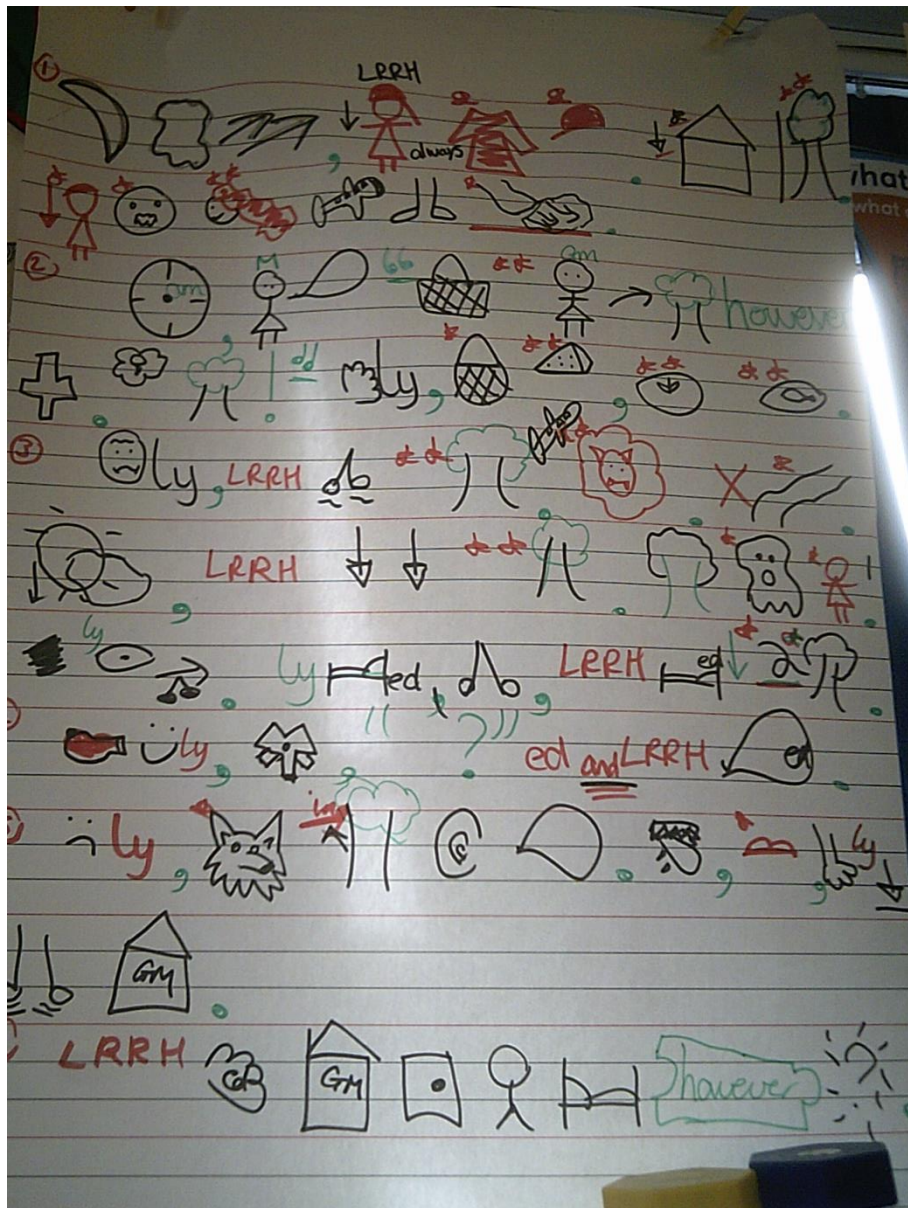 ① LRRH
always ,
.
② am M 66 Gm however
. , . ly, , .
③ ly, LRRH . X .
, LRRH . .
ly . ly ed , LRRH ed .
ly, , ? ed and LRRH ed .
ly , in . , , ly
GM .
LRRH GM however
what
what